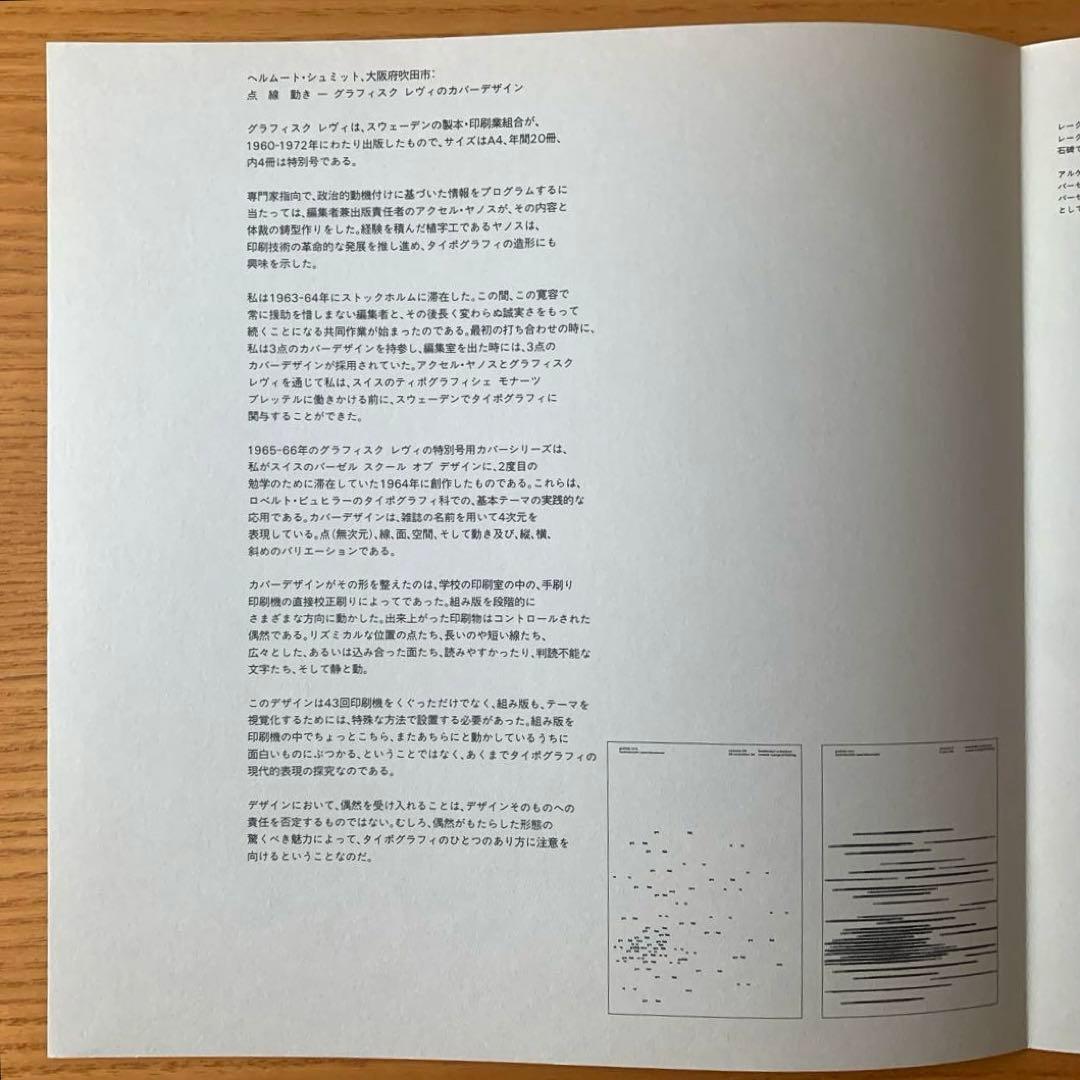 ヘルムート・シュミット、大阪府吹田市：
点　線　動き — グラフィスク レヴィのカバーデザイン
グラフィスク レヴィは、スウェーデンの製本・印刷業組合が、
1960-1972年にわたり出版したもので、サイズはA4、年間20冊、
内4冊は特別号である。
専門家指向で、政治的動機付けに基づいた情報をプログラムするに
当たっては、編集者兼出版責任者のアクセル・ヤノスが、その内容と
体裁の鋳型作りをした。経験を積んだ植字工であるヤノスは、
印刷技術の革命的な発展を推し進め、タイポグラフィの造形にも
興味を示した。
私は1963-64年にストックホルムに滞在した。この間、この寛容で
常に援助を惜しまない編集者と、その後長く変わらぬ誠実さをもって
続くことになる共同作業が始まったのである。最初の打ち合わせの時に、
私は3点のカバーデザインを持参し、編集室を出た時には、3点の
カバーデザインが採用されていた。アクセル・ヤノスとグラフィスク
レヴィを通じて私は、スイスのティポグラフィシェ モナーツ
ブレッテルに働きかける前に、スウェーデンでタイポグラフィに
関与することができた。
1965-66年のグラフィスク レヴィの特別号用カバーシリーズは、
私がスイスのバーゼル スクール オブ デザインに、2度目の
勉学のために滞在していた1964年に創作したものである。これらは、
ロベルト・ビュヒラーのタイポグラフィ科での、基本テーマの実践的な
応用である。カバーデザインは、雑誌の名前を用いて4次元を
表現している。点（無次元）、線、面、空間、そして動き及び、縦、横、
斜めのバリエーションである。
カバーデザインがその形を整えたのは、学校の印刷室の中の、手刷り
印刷機の直接校正刷りによってであった。組み版を段階的に
さまざまな方向に動かした。出来上がった印刷物はコントロールされた
偶然である。リズミカルな位置の点たち、長いのや短い線たち、
広々とした、あるいは込み合った面たち、読みやすかったり、判読不能な
文字たち、そして静と動。
このデザインは43回印刷機をくぐっただけでなく、組み版も、テーマを
視覚化するためには、特殊な方法で設置する必要があった。組み版を
印刷機の中でちょっとこちら、またあちらにと動かしているうちに
面白いものにぶつかる、ということではなく、あくまでタイポグラフィの
現代的表現の探究なのである。
デザインにおいて、偶然を受け入れることは、デザインそのものへの
責任を否定するものではない。むしろ、偶然がもたらした形態の
驚くべき魅力によって、タイポグラフィのひとつのあり方に注意を
向けるということなのだ。
レーク
レーク
石碑で
アルケ
バーゼ
バーゼ
として